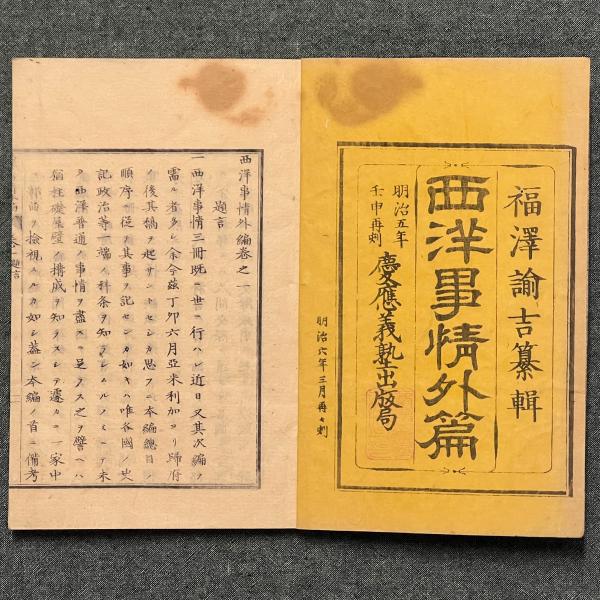 福澤諭吉纂輯
西洋事情外篇
明治五年
壬申再刻
慶應義塾出版局
明治六年三月再々刻
西洋事情外編巻之一
題言
一西洋事情三冊既ニ世ニ行ハレ近日又其次編ヲ
需ル者多シ余今茲丁卯六月亞米利加ヨリ歸府
ノ後其稿ヲ起サントセシカ思フニ本編總目ノ
順序ニ從テ其事ヲ記センカ如キハ唯各國ノ史
記政治等一端ノ科条ヲ知ラシムルノミニテ未
タ西洋普通ノ事情ヲ盡スニ足ラス之ヲ譬ヘハ
猶柱礎屋壁ノ構成ヲ知ラスシテ遽カニ一家中
ノ部曲ヲ檢視スルカ如シ蓋シ本編ノ首ニ備考